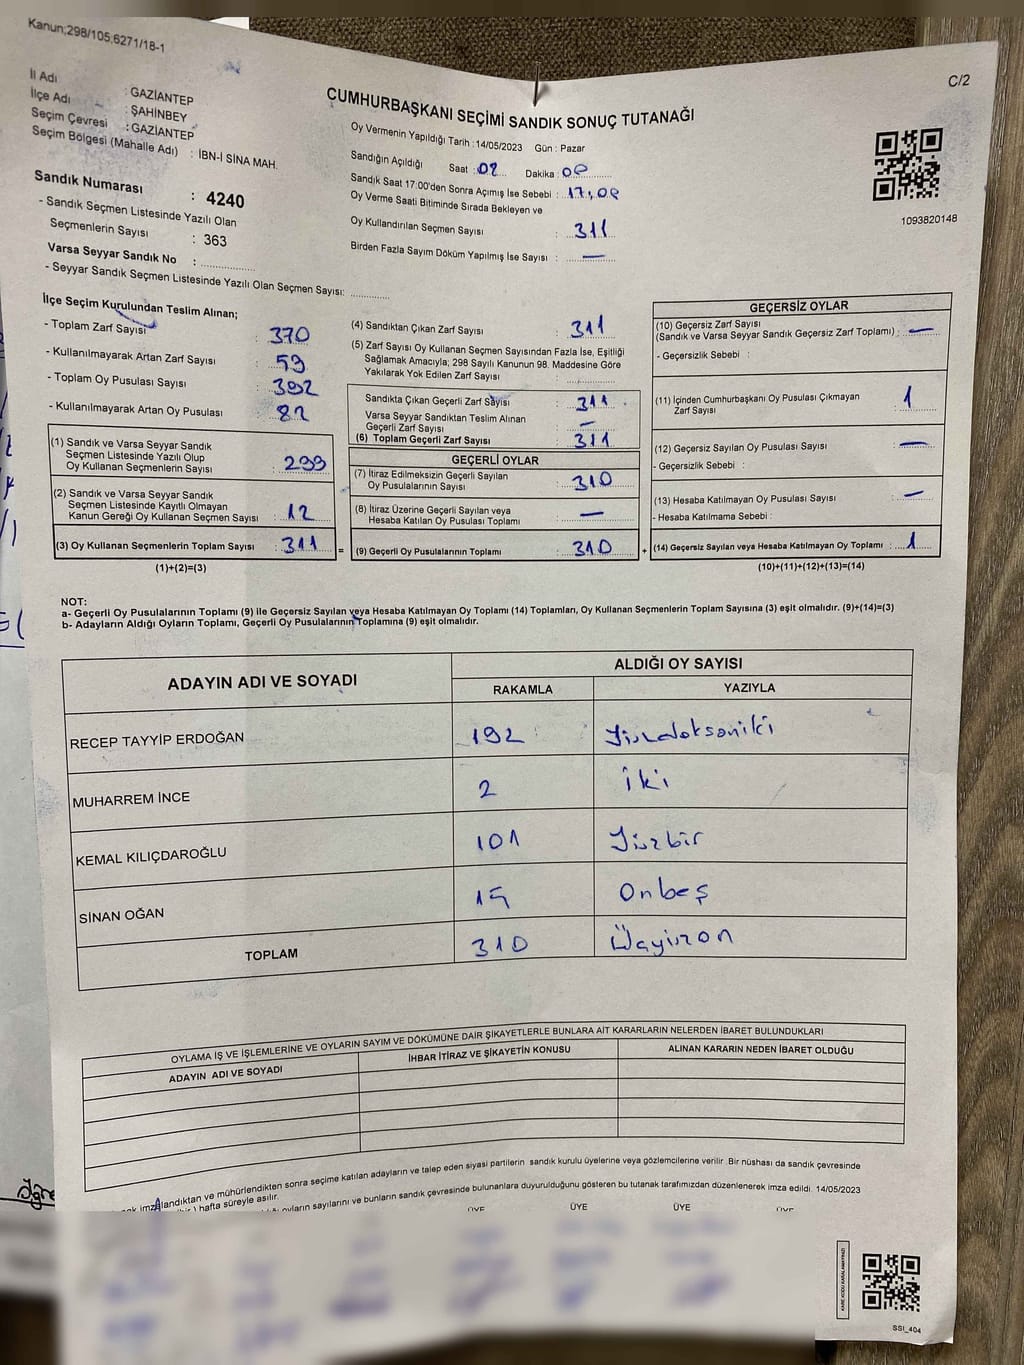 Kanun;298/105,6271/18-1
C/2
İl Adı : GAZİANTEP
İlçe Adı : ŞAHİNBEY
Seçim Çevresi : GAZİANTEP
Seçim Bölgesi (Mahalle Adı) : İBN-İ SİNA MAH.
Sandık Numarası : 4240
- Sandık Seçmen Listesinde Yazılı Olan
Seçmenlerin Sayısı : 363
Varsa Seyyar Sandık No :
- Seyyar Sandık Seçmen Listesinde Yazılı Olan Seçmen Sayısı:
CUMHURBAŞKANI SEÇİMİ SANDIK SONUÇ TUTANAĞI
Oy Vermenin Yapıldığı Tarih : 14/05/2023 Gün : Pazar
Sandığın Açıldığı Saat : 08 Dakika : 00
Sandık Saat 17:00'den Sonra Açımış İse Sebebi : 17,00
Oy Verme Saati Bitiminde Sırada Bekleyen ve
Oy Kullandırılan Seçmen Sayısı : 311
Birden Fazla Sayım Döküm Yapılmış İse Sayısı : —
1093820148
İlçe Seçim Kurulundan Teslim Alınan;
- Toplam Zarf Sayısı : 370
- Kullanılmayarak Artan Zarf Sayısı : 59
- Toplam Oy Pusulası Sayısı : 392
- Kullanılmayarak Artan Oy Pusulası : 82
(1) Sandık ve Varsa Seyyar Sandık
Seçmen Listesinde Yazılı Olup
Oy Kullanan Seçmenlerin Sayısı : 299
(2) Sandık ve Varsa Seyyar Sandık
Seçmen Listesinde Kayıtlı Olmayan
Kanun Gereği Oy Kullanan Seçmen Sayısı : 12
(3) Oy Kullanan Seçmenlerin Toplam Sayısı : 311
(1)+(2)=(3)
(4) Sandıktan Çıkan Zarf Sayısı : 311
(5) Zarf Sayısı Oy Kullanan Seçmen Sayısından Fazla İse, Eşitliği
Sağlamak Amacıyla; 298 Sayılı Kanunun 98. Maddesine Göre
Yakılarak Yok Edilen Zarf Sayısı :
Sandıkta Çıkan Geçerli Zarf Sayısı : 311
Varsa Seyyar Sandıktan Teslim Alınan
Geçerli Zarf Sayısı : —
(6) Toplam Geçerli Zarf Sayısı : 311
GEÇERLİ OYLAR
(7) İtiraz Edilmeksizin Geçerli Sayılan
Oy Pusulalarının Sayısı : 310
(8) İtiraz Üzerine Geçerli Sayılan veya
Hesaba Katılan Oy Pusulası Toplamı : —
= (9) Geçerli Oy Pusulalarının Toplamı : 310
GEÇERSİZ OYLAR
(10) Geçersiz Zarf Sayısı
(Sandık ve Varsa Seyyar Sandık Geçersiz Zarf Toplamı) : —
- Geçersizlik Sebebi :
(11) İçinden Cumhurbaşkanı Oy Pusulası Çıkmayan
Zarf Sayısı : 1
(12) Geçersiz Sayılan Oy Pusulası Sayısı : —
- Geçersizlik Sebebi :
(13) Hesaba Katılmayan Oy Pusulası Sayısı : —
- Hesaba Katılmama Sebebi :
+ (14) Geçersiz Sayılan veya Hesaba Katılmayan Oy Toplamı : 1
(10)+(11)+(12)+(13)=(14)
NOT:
a- Geçerli Oy Pusulalarının Toplamı (9) ile Geçersiz Sayılan veya Hesaba Katılmayan Oy Toplamı (14) Toplamları, Oy Kullanan Seçmenlerin Toplam Sayısına (3) eşit olmalıdır. (9)+(14)=(3)
b- Adayların Aldığı Oyların Toplamı, Geçerli Oy Pusulalarının Toplamına (9) eşit olmalıdır.
ADAYIN ADI VE SOYADI
ALDIĞI OY SAYISI
RAKAMLA YAZIYLA
RECEP TAYYİP ERDOĞAN 192 Yüzdoksaniki
MUHARREM İNCE 2 iki
KEMAL KILIÇDAROĞLU 101 Yüzbir
SİNAN OĞAN 15 Onbeş
TOPLAM 310 Üçyüzon
OYLAMA İŞ VE İŞLEMLERİNE VE OYLARIN SAYIM VE DÖKÜMÜNE DAİR ŞİKAYETLERLE BUNLARA AİT KARARLARIN NELERDEN İBARET BULUNDUKLARI
ADAYIN ADI VE SOYADI İHBAR İTİRAZ VE ŞİKAYETİN KONUSU ALINAN KARARIN NEDEN İBARET OLDUĞU
imzalandıktan ve mühürlendikten sonra seçime katılan adayların ve talep eden siyasi partilerin sandık kurulu üyelerine veya gözlemcilerine verilir .Bir nüshası da sandık çevresinde
hafta süreyle asılır.
oyların sayılarını ve bunların sandık çevresinde bulunanlara duyurulduğunu gösteren bu tutanak tarafımızdan düzenlenerek imza edildi. 14/05/2023
ÜYE ÜYE ÜYE ÜYE
KARE KODU KARALAMAYINIZ!
SSI_404